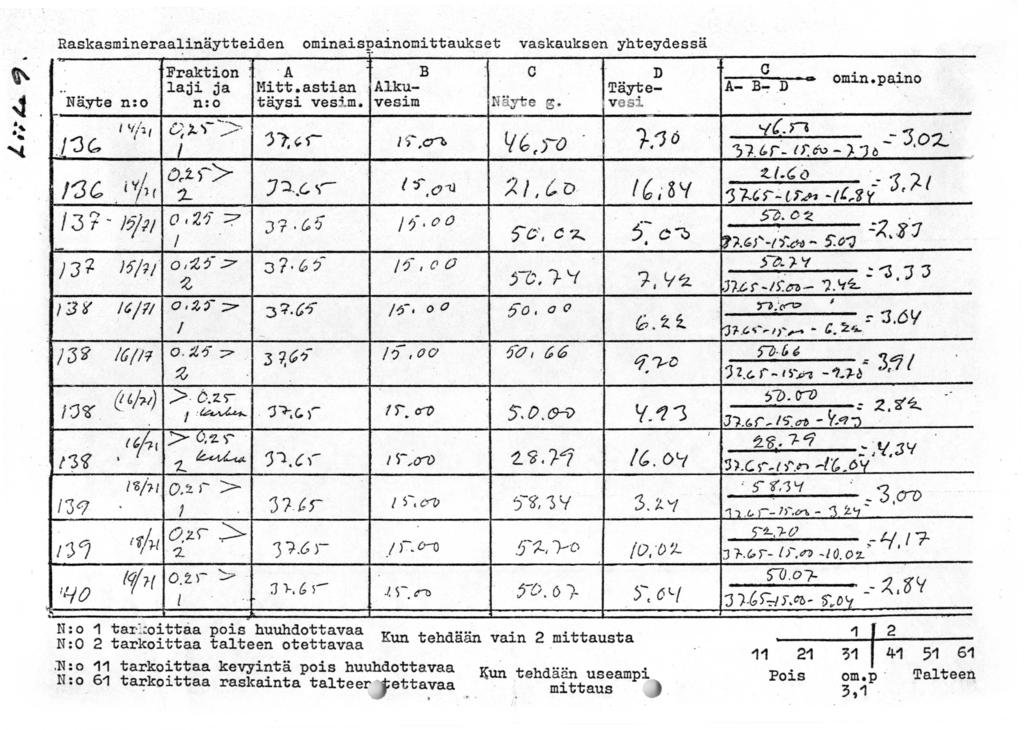 Liite 9.
Raskasmineraalinäytteiden ominaispainomittaukset vaskauksen yhteydessä
Näyte n:o | Fraktion laji ja n:o | A Mitt.astian täysi vesim. | B Alku-vesim | C Näyte g. | D Täyte-vesi | C / A- B- D omin.paino
136 14/71 | 0,25 > 1 | 37,65 | 15,00 | 46,50 | 7.30 | 46.50 / 37.65 - 15.00 - 7.30 = 3.02
136 14/71 | 0.25 > 2 | 37.65 | 15,00 | 21,60 | 16,84 | 21.60 / 37.65 - 15.00 - 16.84 = 3,71
137 - 15/71 | 0,25 > 1 | 37.65 | 15.00 | 50,02 | 5,03 | 50.02 / 37.65 - 15.00 - 5.03 = 2.83
137 15/71 | 0,25 > 2 | 37.65 | 15,00 | 50.74 | 7,42 | 50.74 / 37.65 - 15.00 - 7.42 = 3,33
138 16/71 | 0.25 > 1 | 37.65 | 15.00 | 50,00 | 6.22 | 50.00 / 37.65 - 15.00 - 6.22 = 3.04
138 16/17 | 0.25 > 2 | 37,65 | 15,00 | 50,66 | 9,70 | 50.66 / 37.65 - 15.00 - 9.70 = 3,91
138 (16/71) | > 0.25 1 karkea | 37,65 | 15.00 | 5.0.00 | 4.93 | 50.00 / 37.65 - 15.00 - 4.93 = 2,82
138 16/71 | > 0,25 2 karkea | 37.65 | 15,00 | 28.79 | 16.04 | 28,79 / 37.65 - 15.00 - 16,04 = 4,34
139 18/71 | 0.25 > 1 | 37.65 | 15,00 | 58,34 | 3.24 | 58.34 / 37.65 - 15.00 - 3.24 = 3,00
139 18/71 | 0,25 > 2 | 37.65 | 15.00 | 52,70 | 10,02 | 52,70 / 37.65 - 15.00 - 10.02 = 4,17
140 19/71 | 0.25 > 1 | 37.65 | 15.00 | 50.07 | 5,04 | 50.07 / 37.65 - 15.00 - 5,04 = 2,84
N:o 1 tarkoittaa pois huuhdottavaa
N:O 2 tarkoittaa talteen otettavaa
Kun tehdään vain 2 mittausta
N:o 11 tarkoittaa kevyintä pois huuhdottavaa
N:o 61 tarkoittaa raskainta talteen otettavaa
Kun tehdään useampi
mittaus
1 | 2
11 21 31 | 41 51 61
Pois om.p Talteen
3,1